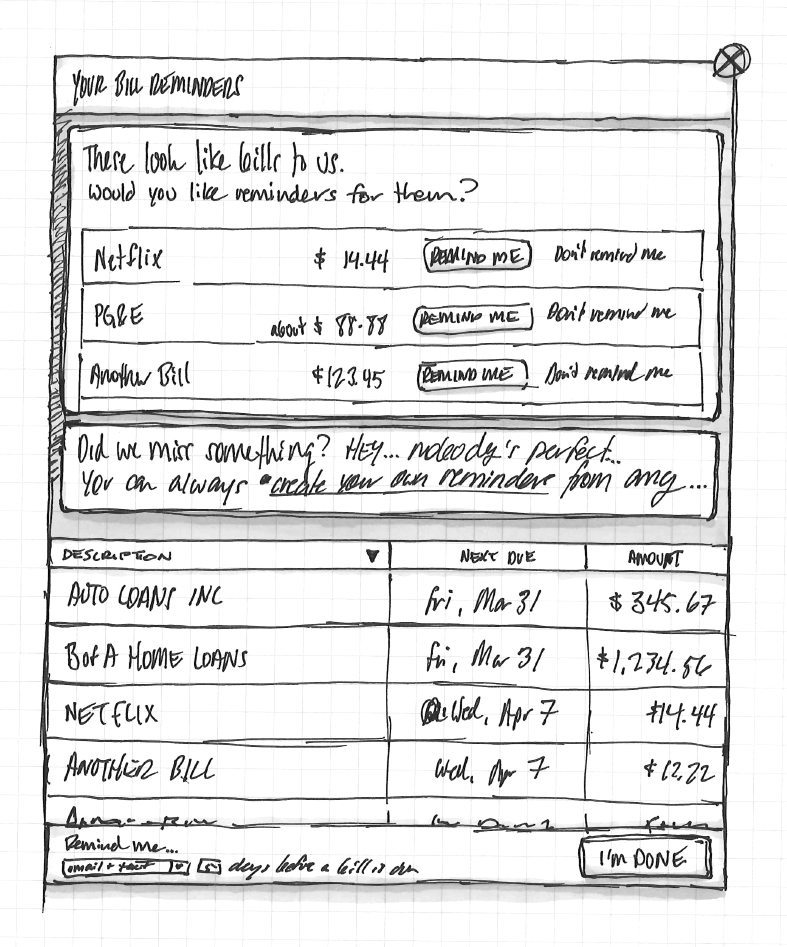 YOUR BILL REMINDERS
These look like bills to us.
Would you like reminders for them?
Netflix $ 14.44 REMIND ME Don't remind me
PG&E about $ 88.88 REMIND ME Don't remind me
Another Bill $123.45 REMIND ME Don't remind me
Did we miss something? HEY... nobody's perfect...
You can always create your own reminders from any ...
DESCRIPTION ▼ NEXT DUE AMOUNT
AUTO LOANS INC Fri, Mar 31 $ 345.67
B of A HOME LOANS Fri, Mar 31 $1,234.56
NETFLIX Wed, Apr 7 $14.44
ANOTHER BILL Wed, Apr 7 $12.22
Remind me...
email + text 5 days before a bill is due
I'M DONE